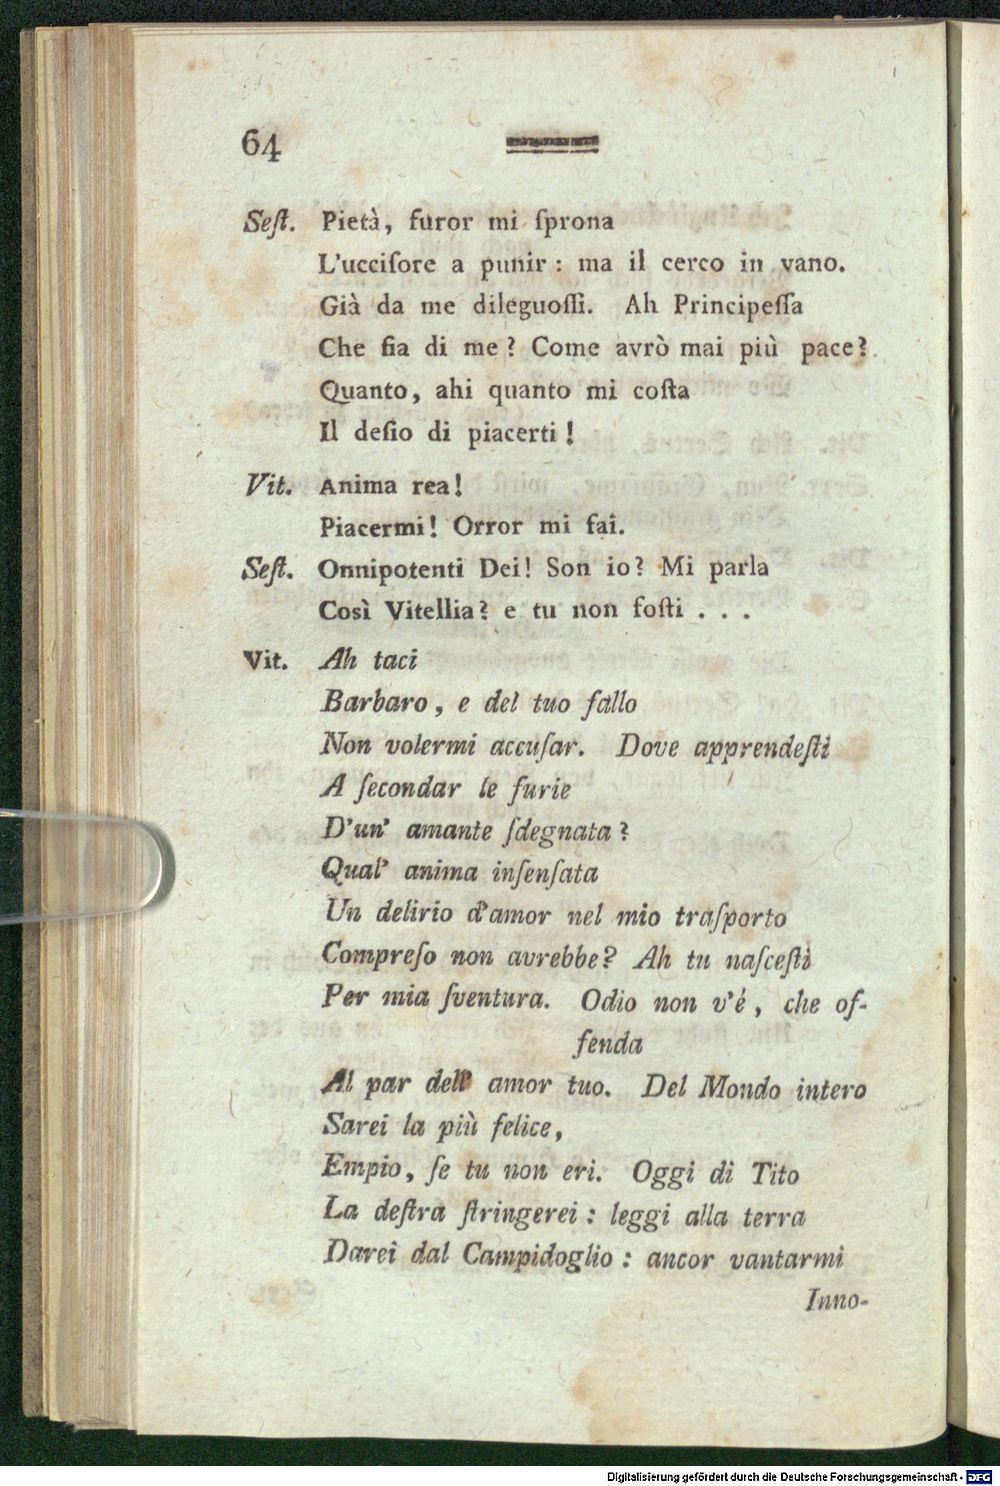 64
Seſt. Pietà, furor mi ſprona
L'ucciſore a punir: ma il cerco in vano.
Già da me dileguoſſi. Ah Principeſſa
Che fia di me? Come avrò mai più pace?
Quanto, ahi quanto mi coſta
Il deſio di piacerti!
Vit. Anima rea!
Piacermi! Orror mi fai.
Seſt. Onnipotenti Dei! Son io? Mi parla
Così Vitellia? e tu non foſti . . .
Vit. Ah taci
Barbaro, e del tuo fallo
Non volermi accuſar. Dove apprendeſti
A ſecondar le furie
D'un' amante ſdegnata?
Qual' anima inſenſata
Un delirio d'amor nel mio traſporto
Compreſo non avrebbe? Ah tu naſceſti
Per mia ſventura. Odio non v'é, che of-
fenda
Al par dell' amor tuo. Del Mondo intero
Sarei la più felice,
Empio, ſe tu non eri. Oggi di Tito
La deſtra ſtringerei: leggi alla terra
Darei dal Campidoglio: ancor vantarmi
Inno-
Digitalisierung gefördert durch die Deutsche Forschungsgemeinschaft - DFG